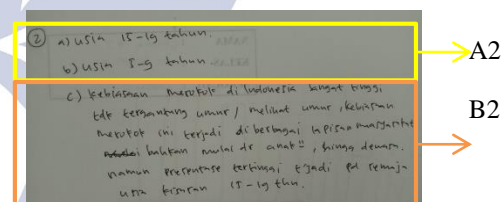 ② a) usia 15-19 tahun.
A2
b) usia 5-9 tahun
c) kebiasaan merokok di Indonesia sangat tinggi
B2
tdk tergantung umur / melihat umur, kebiasaan
merokok ini terjadi di berbagai lapisan masyarakat
bahkan mulai dr anak", hingga dewasa.
namun presentase tertinggi tjadi pd remaja
usia kisaran 15-19 thn.